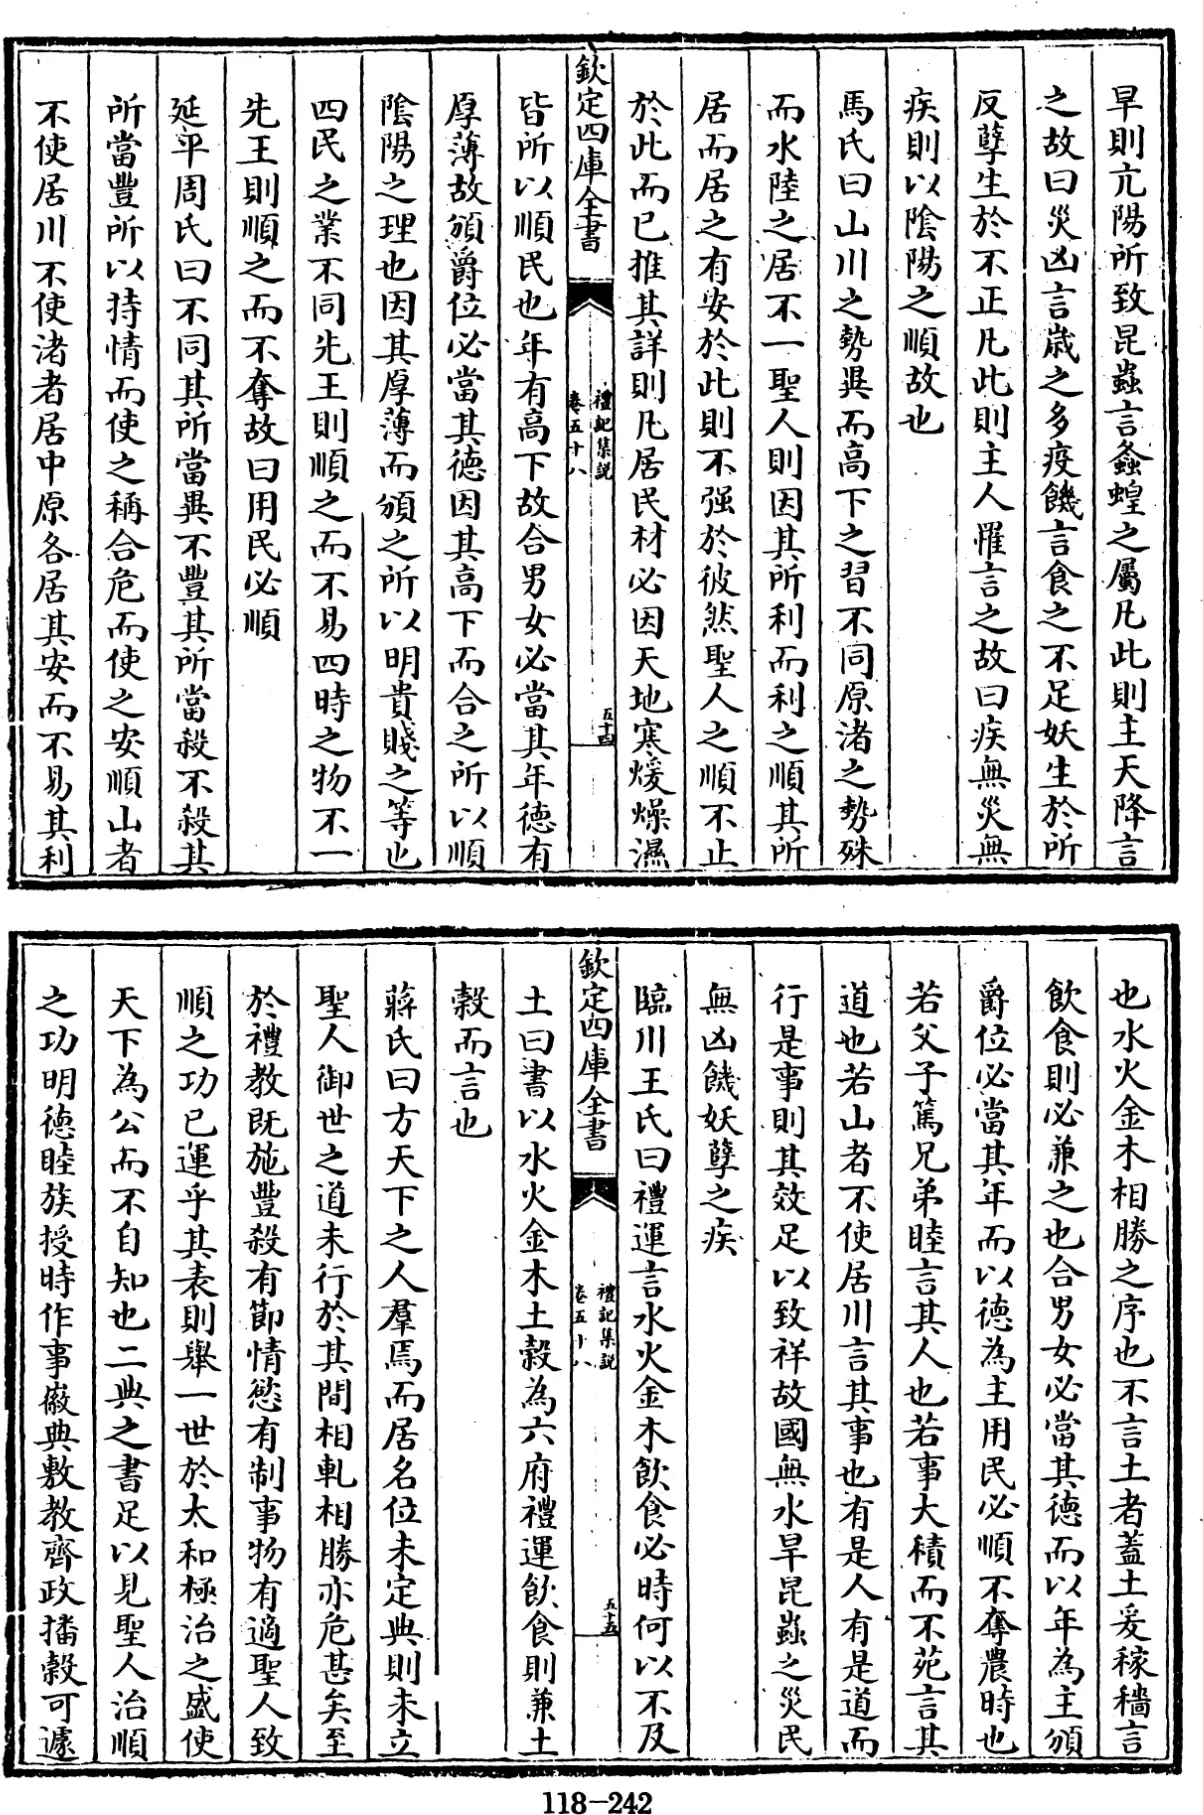 旱則亢陽所致昆蟲言螽蝗之屬凡此則主天降言
之故曰災凶言歳之多疫饑言食之不足妖生於所
反孽生於不正凡此則主人罹言之故曰疾無災無
疾則以陰陽之順故也
馬氏曰山川之勢異而高下之習不同原渚之勢殊
而水陸之居不一聖人則因其所利而利之順其所
居而居之有安於此則不强於彼然聖人之順不止
於此而已推其詳則凡居民材必因天地寒煖燥濕
欽定四庫全書
禮記集説
卷五十八
五十四
皆所以順民也年有高下故合男女必當其年德有
厚薄故頒爵位必當其德因其高下而合之所以順
陰陽之理也因其厚薄而頒之所以明貴賤之等也
四民之業不同先王則順之而不易四時之物不一
先王則順之而不奪故曰用民必順
延平周氏曰不同其所當異不豐其所當殺不殺其
所當豐所以持情而使之稱合危而使之安順山者
不使居川不使渚者居中原各居其安而不易其利
也水火金木相勝之序也不言土者蓋土爰稼穡言
飲食則必兼之也合男女必當其德而以年為主頒
爵位必當其年而以德為主用民必順不奪農時也
若父子篤兄弟睦言其人也若事大積而不苑言其
道也若山者不使居川言其事也有是人有是道而
行是事則其效足以致祥故國無水旱昆蟲之災民
無凶饑妖孽之疾
臨川王氏曰禮運言水火金木飲食必時何以不及
欽定四庫全書
禮記集説
卷五十八
五十五
土曰書以水火金木土穀為六府禮運飲食則兼土
穀而言也
蔣氏曰方天下之人羣焉而居名位未定典則未立
聖人御世之道未行於其間相軋相勝亦危甚矣至
於禮教既施豐殺有節情慾有制事物有適聖人致
順之功已運乎其表則舉一世於太和極治之盛使
天下為公而不自知也二典之書足以見聖人治順
之功明德睦族授時作事徽典敷教齊政播穀可遽
118-242